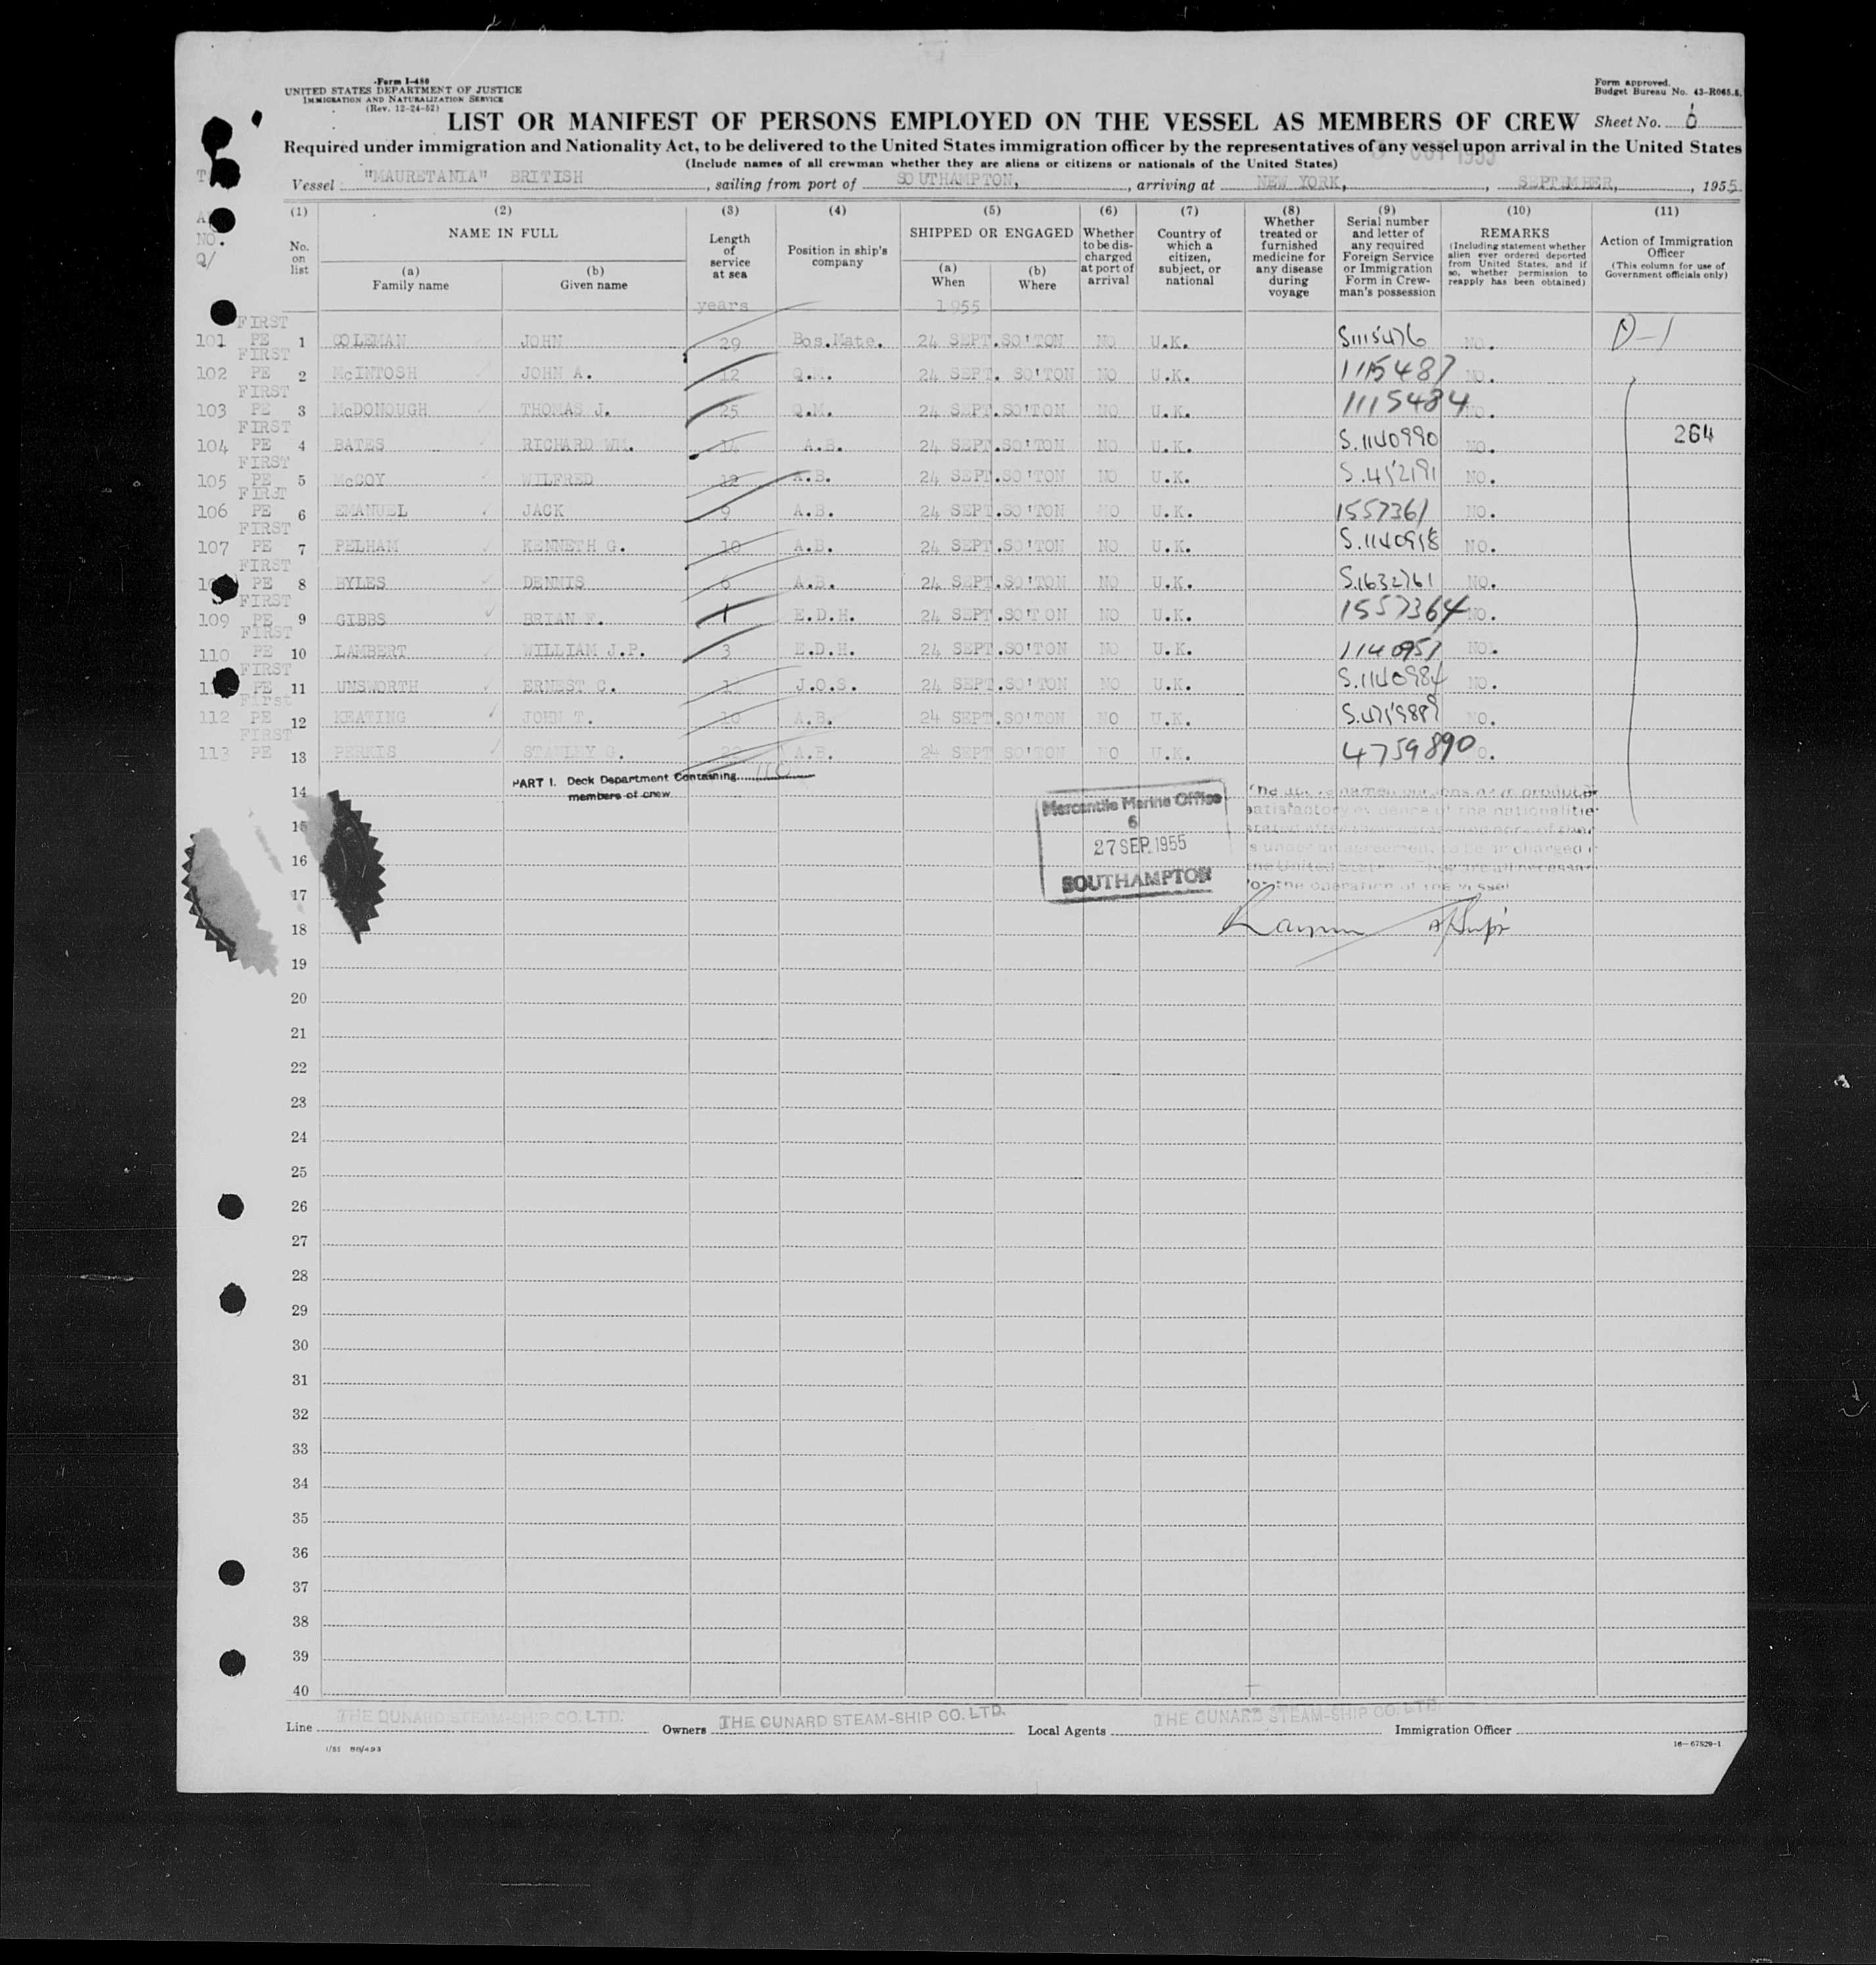 Form I-480
UNITED STATES DEPARTMENT OF JUSTICE
IMMIGRATION AND NATURALIZATION SERVICE
(Rev. 12-24-52)
Form approved.
Budget Bureau No. 43-R065.5.
LIST OR MANIFEST OF PERSONS EMPLOYED ON THE VESSEL AS MEMBERS OF CREW Sheet No. 6
Required under immigration and Nationality Act, to be delivered to the United States immigration officer by the representatives of any vessel upon arrival in the United States
(Include names of all crewman whether they are aliens or citizens or nationals of the United States)
Vessel "MAURETANIA" BRITISH, sailing from port of SOUTHAMPTON, arriving at NEW YORK, SEPTEMBER, 1955
(1) (2) (3) (4) (5) (6) (7) (8) (9) (10) (11)
No. on list
NAME IN FULL
(a) Family name
(b) Given name
Length of service at sea
Position in ship's company
SHIPPED OR ENGAGED
(a) When
(b) Where
Whether to be discharged at port of arrival
Country of which a citizen, subject, or national
Whether treated or furnished medicine for any disease during voyage
Serial number and letter of any required Foreign Service or Immigration Form in Crewman's possession
REMARKS
(Including statement whether alien ever ordered deported from United States, and if so, whether permission to reapply has been obtained)
Action of Immigration Officer
(This column for use of Government officials only)
NO.
Q/
years 1955
FIRST
101 PE 1 COLEMAN JOHN 29 Bos.Mate. 24 SEPT.SO'TON NO U.K. S1115476 NO. D-1
FIRST
102 PE 2 McINTOSH JOHN A. 12 Q.M. 24 SEPT. SO'TON NO U.K. 1115487 NO.
FIRST
103 PE 3 McDONOUGH THOMAS J. 25 Q.M. 24 SEPT.SO'TON NO U.K. 1115484 NO.
FIRST
104 PE 4 BATES RICHARD WM. 14 A.B. 24 SEPT.SO'TON NO U.K. S.1140990 NO. 264
FIRST
105 PE 5 McCOY WILFRED 12 A.B. 24 SEPT.SO'TON NO U.K. NO.
FIRST
106 PE 6 EMANUEL JACK 9 A.B. 24 SEPT.SO'TON NO U.K. 1557361 NO.
FIRST
107 PE 7 PELHAM KENNETH G. 10 A.B. 24 SEPT.SO'TON NO U.K. NO.
FIRST
PE 8 BYLES DENNIS 6 A.B. 24 SEPT.SO'TON NO U.K. S.1632761 NO.
FIRST
109 PE 9 GIBBS BRIAN F. 1 E.D.H. 24 SEPT.SO'TON NO U.K. 1557364 NO.
FIRST
110 PE 10 LAMBERT WILLIAM J.P. 3 E.D.H. 24 SEPT.SO'TON NO U.K. 1140951 NO.
FIRST
PE 11 UNSWORTH ERNEST C. 1 J.O.S. 24 SEPT.SO'TON NO U.K. S.1140984 NO.
First
112 PE 12 KEATING JOHN T. 10 A.B. 24 SEPT.SO'TON NO U.K. NO.
FIRST
113 PE 13 PERKIS STANLEY G. A.B. 24 SEPT SO'TON NO U.K. 4759890 NO.
PART I. Deck Department Containing
members of crew
14
15
16
17
18
Mercantile Marine Office
6
27 SEP. 1955
SOUTHAMPTON
for the operation of the vessel
19
20
21
22
23
24
25
26
27
28
29
30
31
32
33
34
35
36
37
38
39
40
Line THE CUNARD STEAM-SHIP CO. LTD. Owners THE CUNARD STEAM-SHIP CO. LTD. Local Agents THE CUNARD STEAM-SHIP CO. LTD. Immigration Officer
16-67529-1